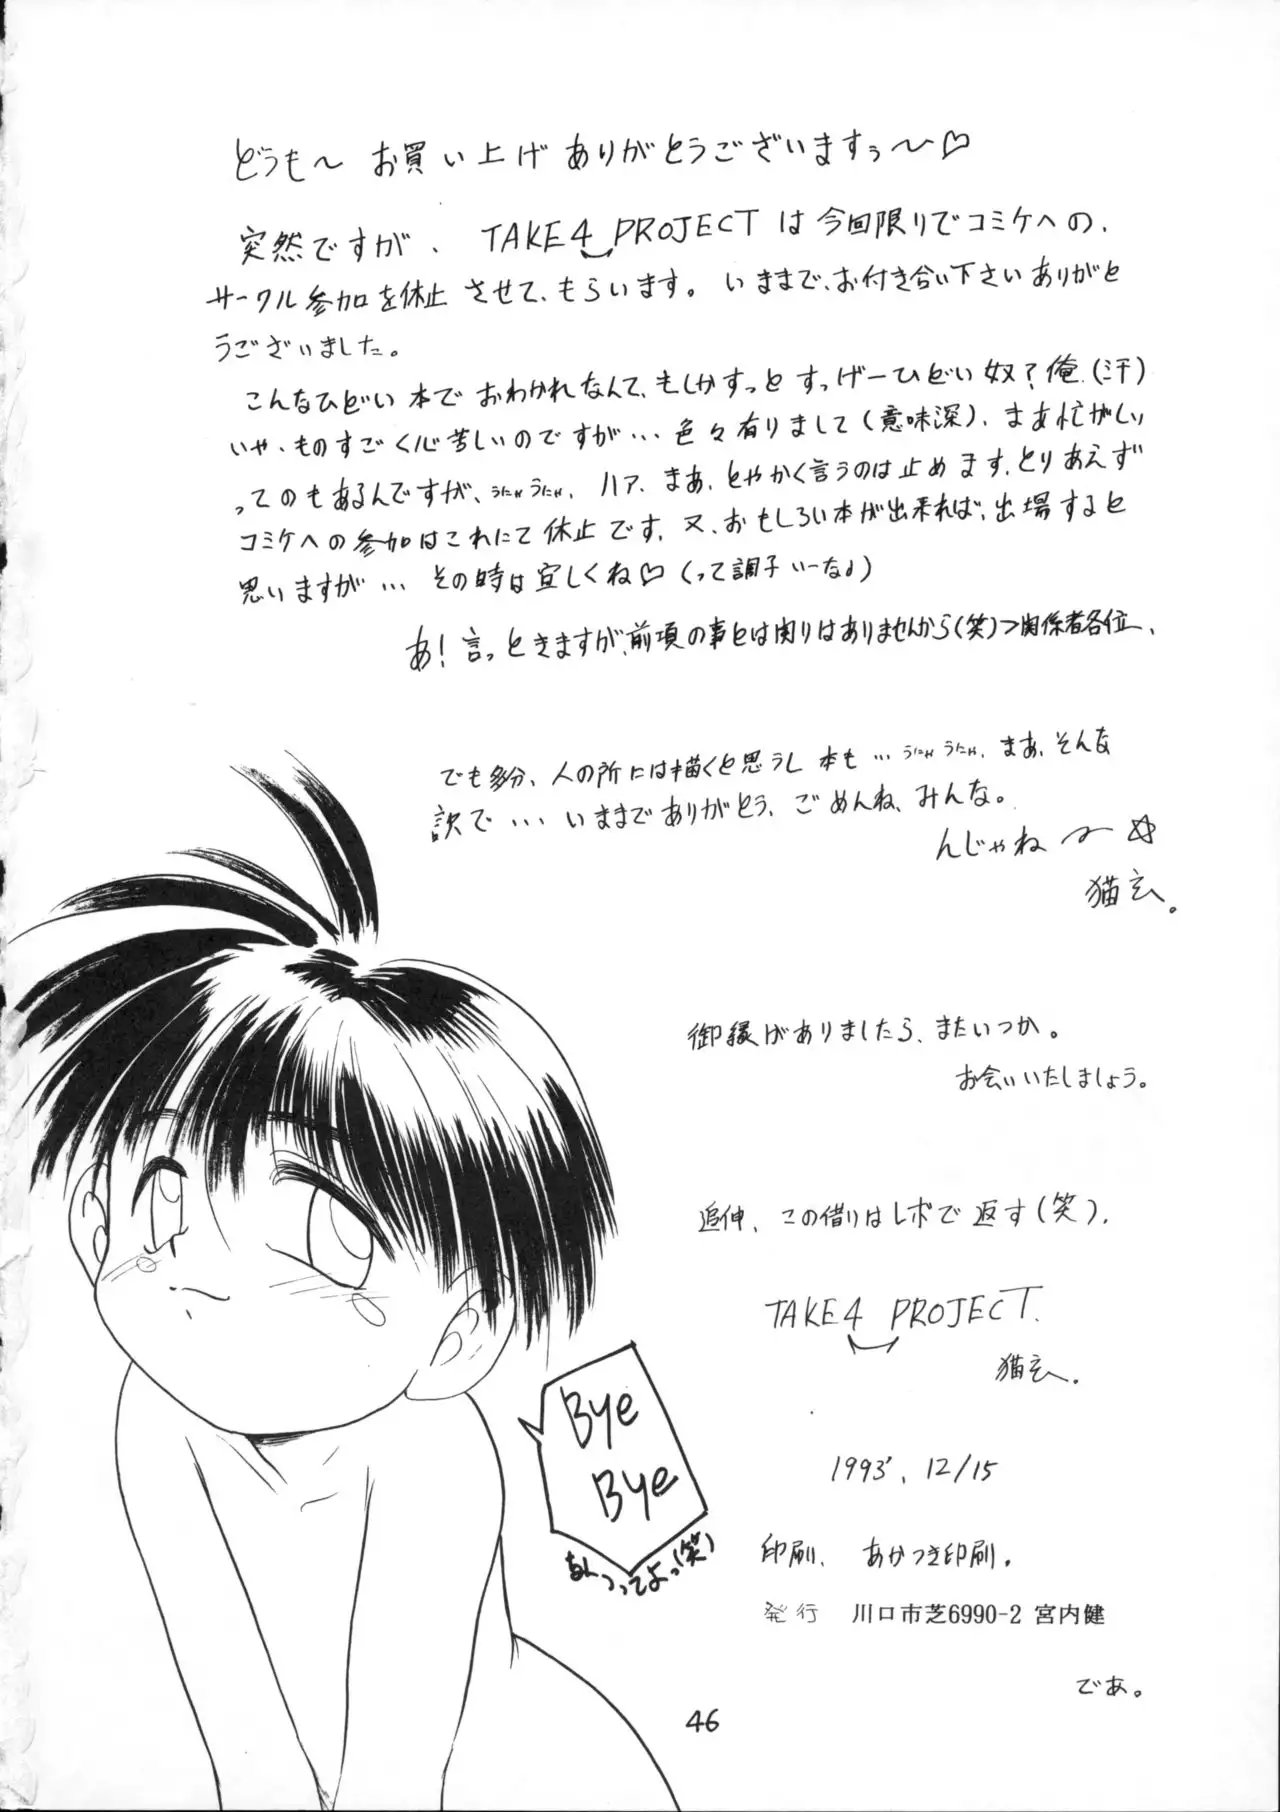 どうも〜 お買い上げ ありがとうございますぅ〜♡
突然ですが、 TAKE4 PROJECT は今回限りでコミケへの、
サークル参加を休止 させて、もらいます。 いままで、お付き合い下さいありがと
うございました。
こんなひどい 本で おわかれなんて、もしかすっと すっげーひどい 奴？俺、(汗)
いや、ものすごく心苦しいのですが… 色々有りまして(意味深)、まあ忙がしい
ってのもあるんですが、うにゃうにゃ、 ハァ、まあ、とやかく言うのは止めます、とりあえず
コミケへの参加はこれにて休止です、又、おもしろい本が出来れば、出場すると
思いますが… その時は宜しくね♡(って調子いーな♩)
あ！言っときますが、前項の事とは関りはありませんから(笑)>関係者各位、
でも多分、人の所には描くと思うし 本も…うにゃ うにゃ、まあ、そんな
訳で…いままでありがとう、ごめんね、みんな。
んじゃね〜☆
猫玄。
御縁がありましたら、またいつか。
お会いいたしましょう。
追伸、この借りはレポで返す(笑)、
TAKE4 PROJECT.
猫玄。
Bye
Bye
つってよっ(笑)
1993', 12/15
印刷、 あかつき印刷。
発行 川口市芝6990-2 宮内健
であ。
46